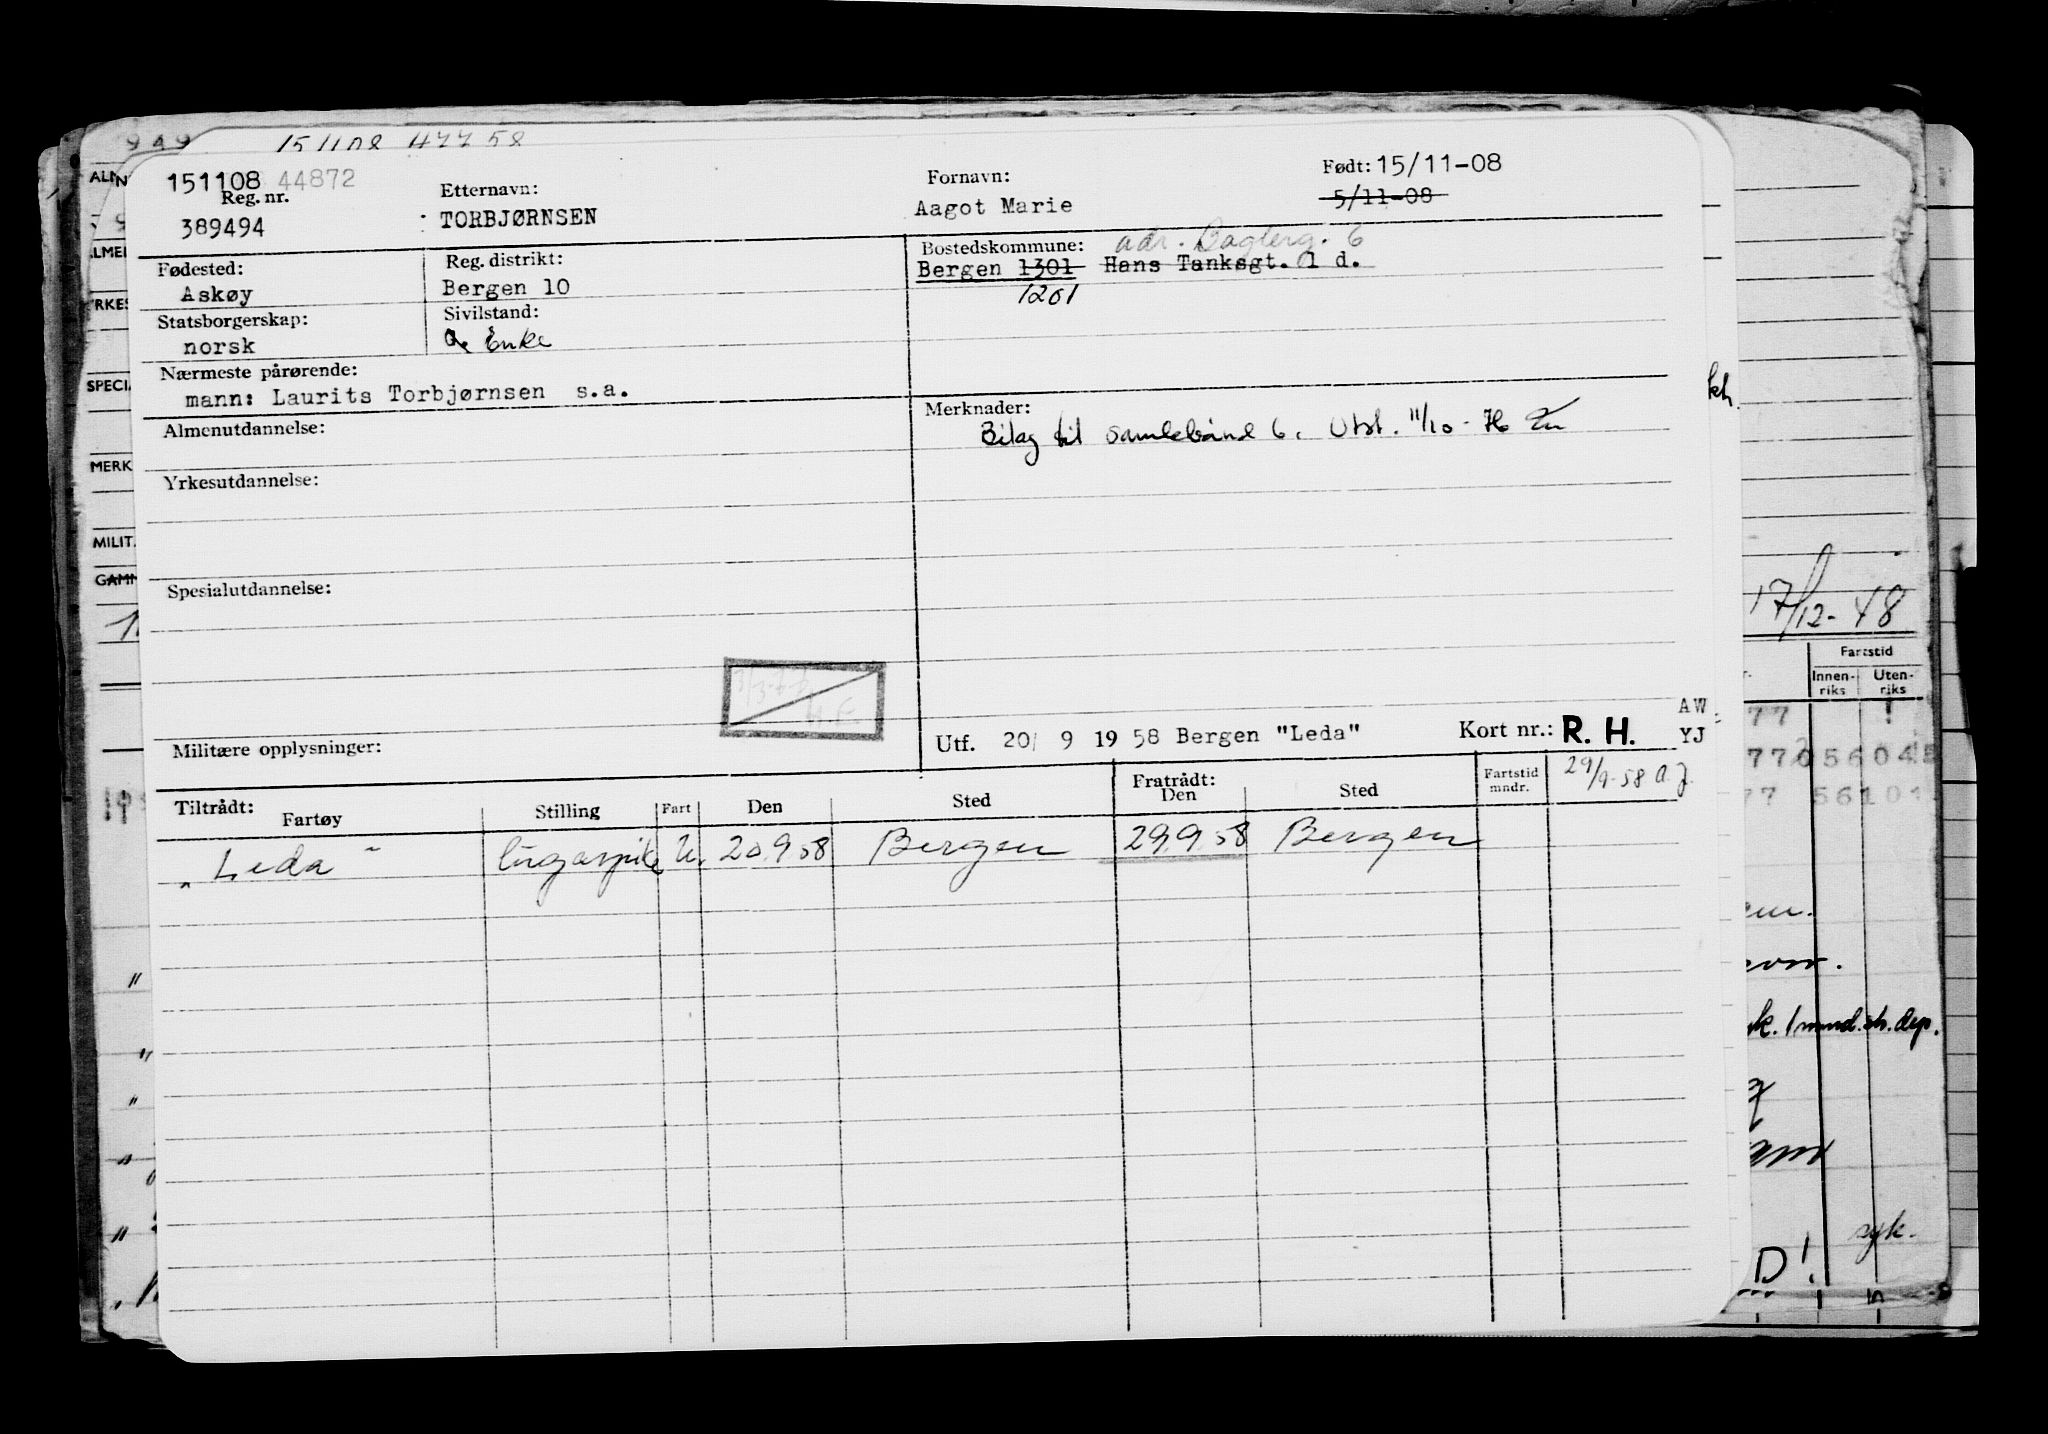 949 151108 47758
151108 44872
Reg. nr.
389494
Etternavn:
TORBJØRNSEN
Fornavn:
Aagot Marie
Født: 15/11-08
5/11-08
Fødested:
Askøy
Reg. distrikt:
Bergen 10
Bostedskommune: adr.
Bergen 1301 Hans Tanksgt. 1 d.
1201
Statsborgerskap:
norsk
Sivilstand:
Enke
Nærmeste pårørende:
mann: Laurits Torbjørnsen s.a.
Almenutdannelse:
Merknader:
Bilag til samlebånd 6. Utst. 11/10-76
Yrkesutdannelse:
Spesialutdannelse:
Militære opplysninger:
Utf. 20/ 9 1958 Bergen "Leda" Kort nr.: R. H.
AW
YJ
Tiltrådt:
Fartøy Stilling Fart Den Sted
Fratrådt:
Den Sted
Fartstid
mndr.
29/9-58 A.J.
"Leda" lugarpike U. 20.9.58 Bergen 29.9.58 Bergen
MERK
MILIT
GAMM
17/12-48
Fartstid
Innen-
riks
Uten-
riks
77
77 056045
77
k. 1 mnd. sk. dep.
syk.
D!